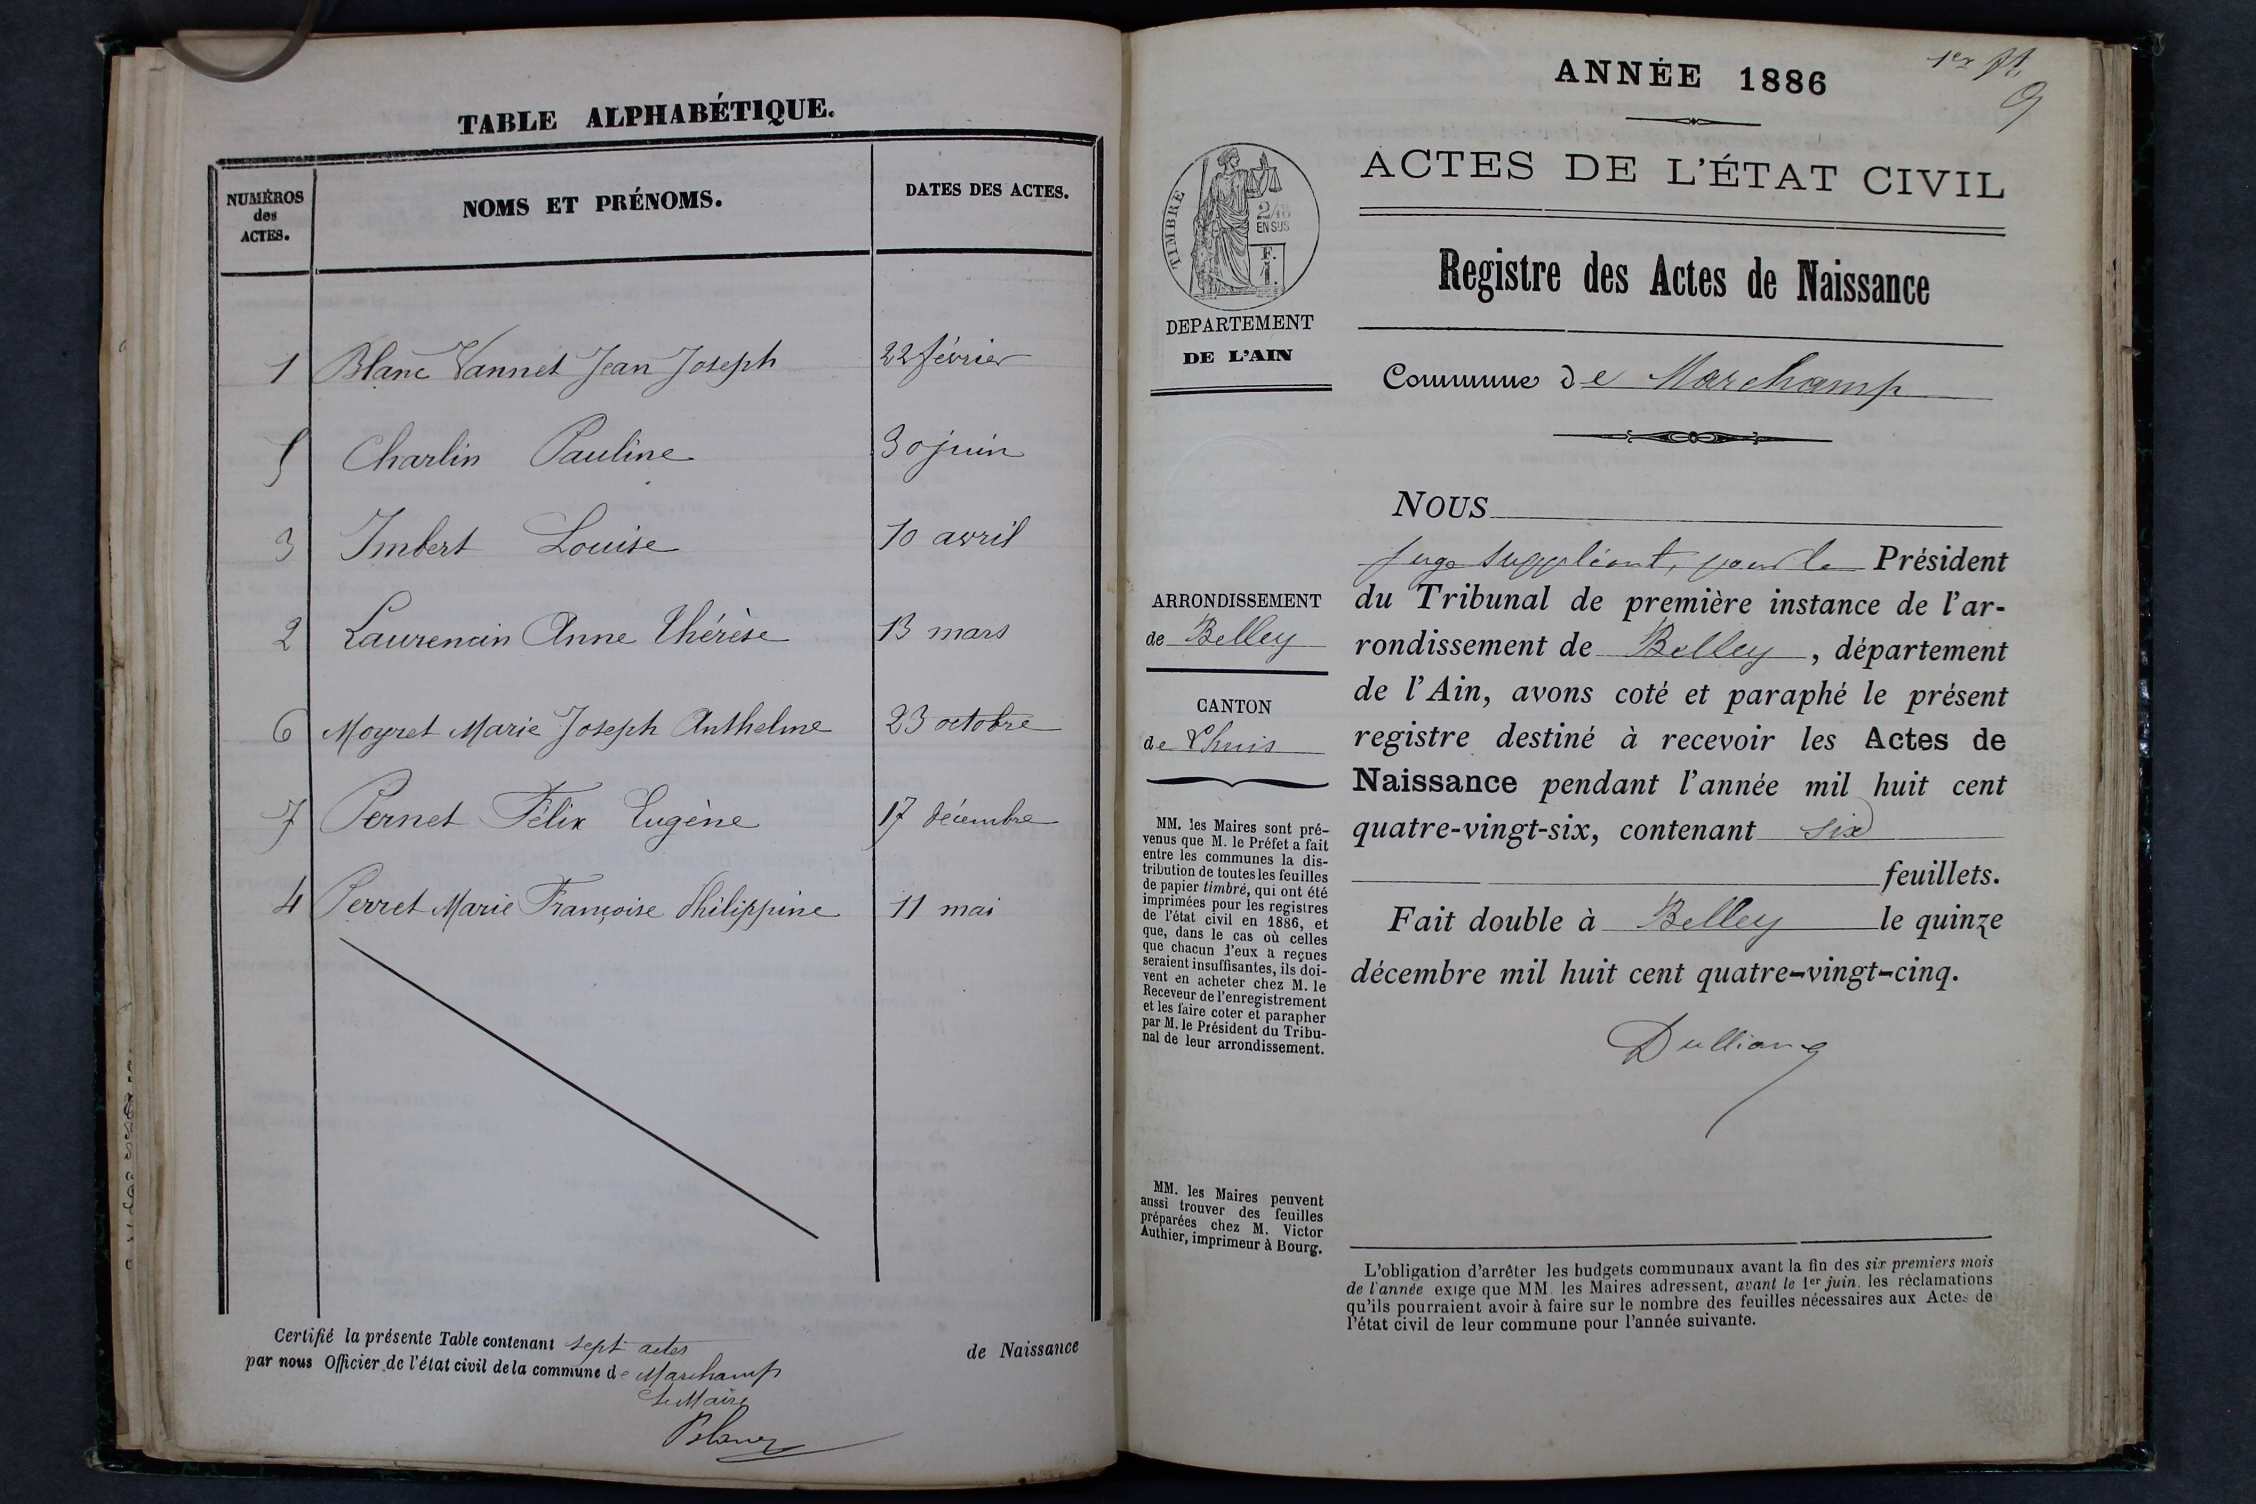 TABLE ALPHABÉTIQUE.
NUMÉROS
des
ACTES.
NOMS ET PRÉNOMS.
DATES DES ACTES.
1 Blanc Vannet Jean Joseph 22 février
5 Charlin Pauline 30 juin
3 Imbert Louise 10 avril
2 Laurencin Anne Thérèse 13 mars
6 Moyret Marie Joseph Anthelme 23 octobre
7 Pernet Félix Eugène 17 décembre
4 Perret Marie Françoise Philippine 11 mai
Certifié la présente Table contenant sept actes de Naissance
par nous Officier de l'état civil de la commune de Marchamp
Le Maire
Blanc
1er ft.
ANNÉE 1886
ACTES DE L'ÉTAT CIVIL
Registre des Actes de Naissance
Commune de Marchamp
TIMBRE
2/10
EN SUS
F.
1.
DEPARTEMENT
DE L'AIN
ARRONDISSEMENT
de Belley
CANTON
de Lhuis
MM. les Maires sont pré-
venus que M. le Préfet a fait
entre les communes la dis-
tribution de toutes les feuilles
de papier timbré, qui ont été
imprimées pour les registres
de l'état civil en 1886, et
que, dans le cas où celles
que chacun d'eux a reçues
seraient insuffisantes, ils doi-
vent en acheter chez M. le
Receveur de l'enregistrement
et les faire coter et parapher
par M. le Président du Tribu-
nal de leur arrondissement.
MM. les Maires peuvent
aussi trouver des feuilles
préparées chez M. Victor
Authier, imprimeur à Bourg.
NOUS
juge suppléant, pour le Président
du Tribunal de première instance de l'ar-
rondissement de Belley, département
de l'Ain, avons coté et paraphé le présent
registre destiné à recevoir les Actes de
Naissance pendant l'année mil huit cent
quatre-vingt-six, contenant six
feuillets.
Fait double à Belley le quinze
décembre mil huit cent quatre-vingt-cinq.
L'obligation d'arrêter les budgets communaux avant la fin des six premiers mois
de l'année exige que MM. les Maires adressent, avant le 1er juin, les réclamations
qu'ils pourraient avoir à faire sur le nombre des feuilles nécessaires aux Actes de
l'état civil de leur commune pour l'année suivante.